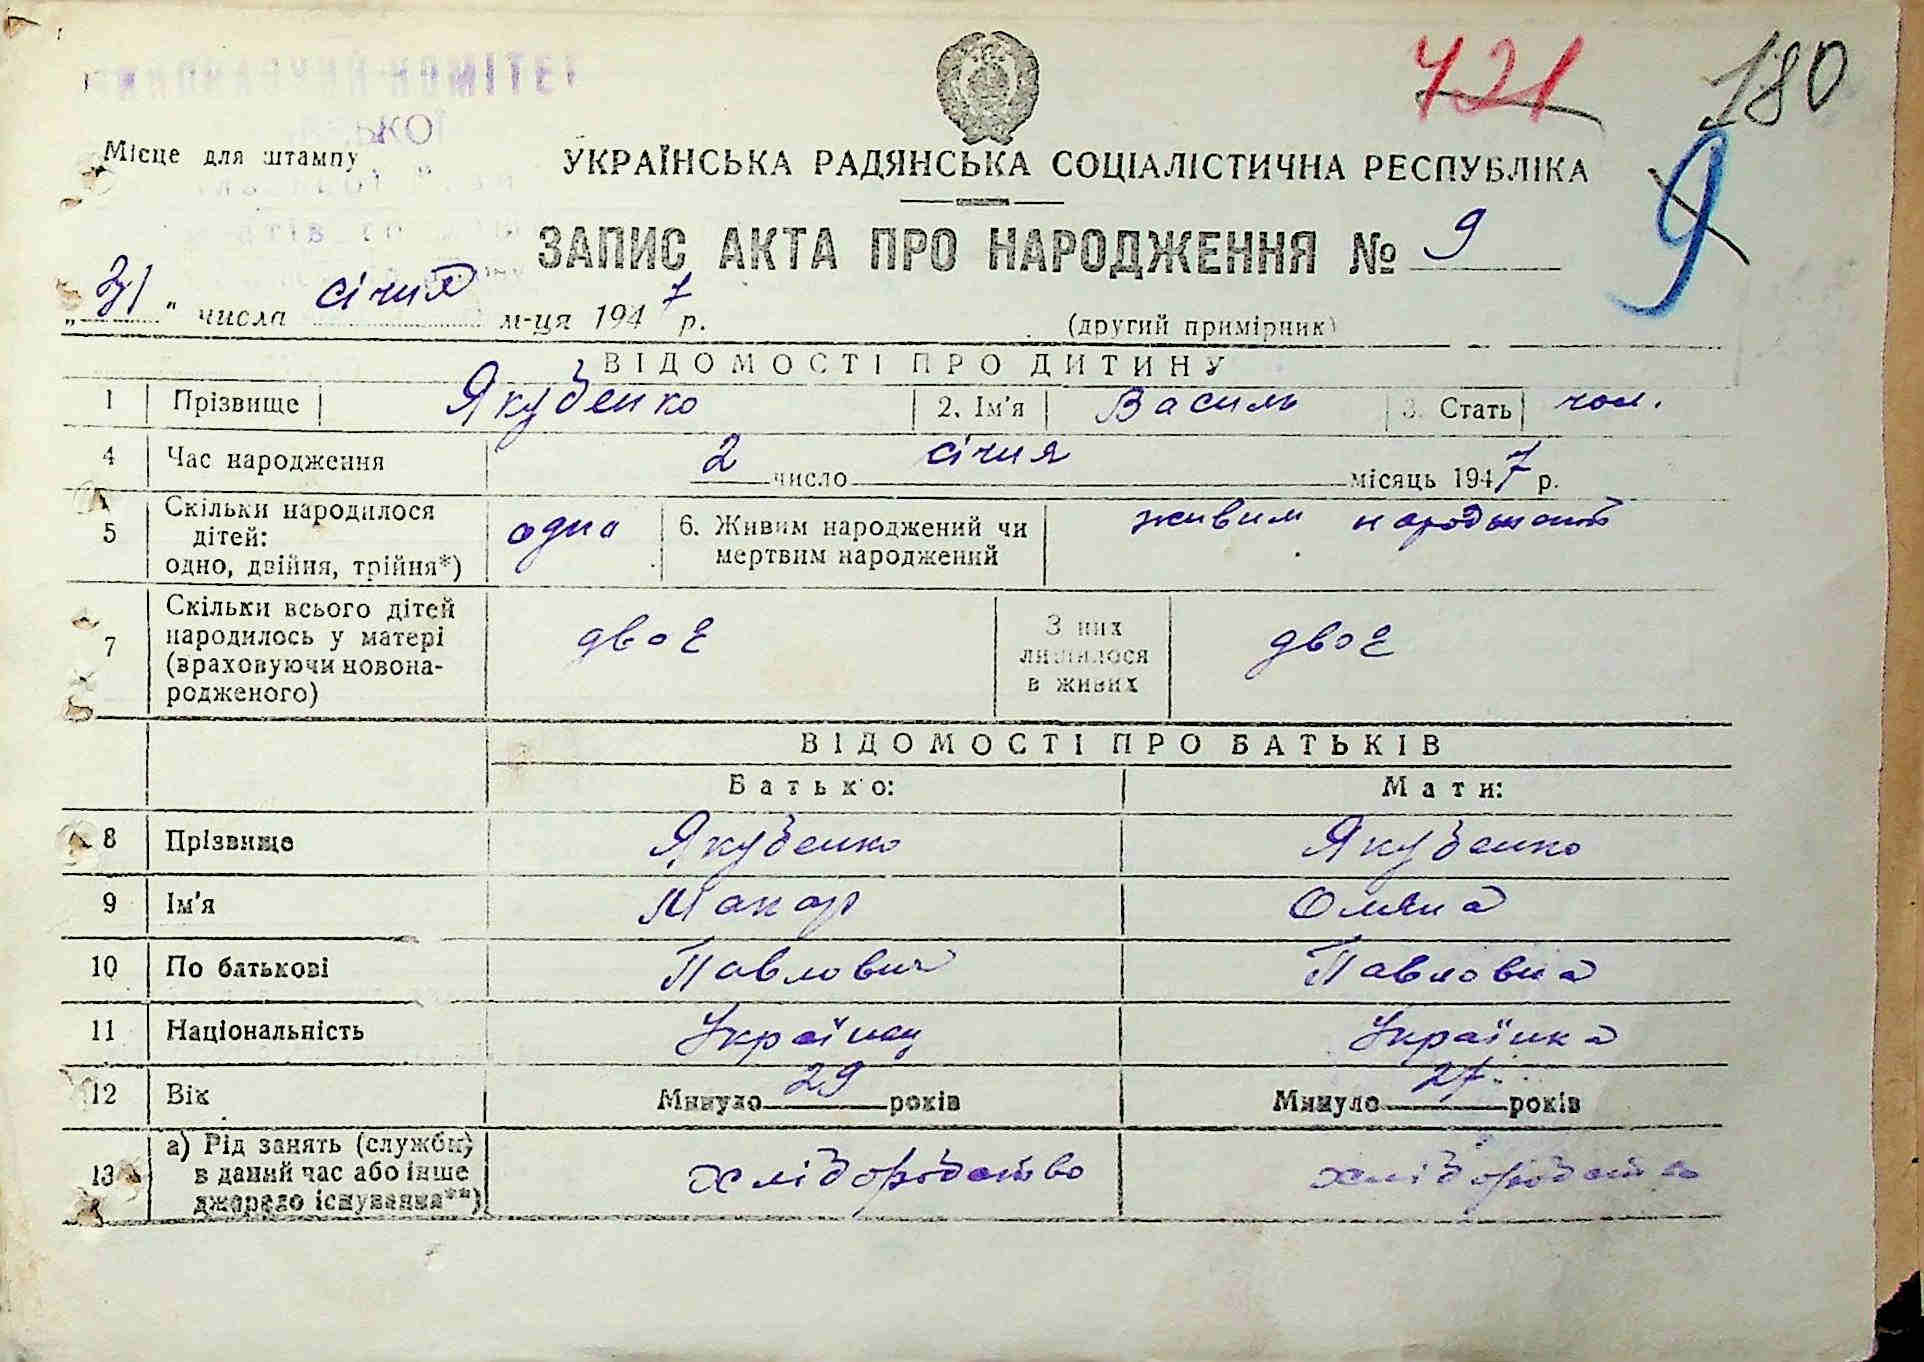 421 180
КОМІТЕТ
Місце для штампу
УКРАЇНСЬКА РАДЯНСЬКА СОЦІАЛІСТИЧНА РЕСПУБЛІКА
9
ЗАПИС АКТА ПРО НАРОДЖЕННЯ № 9
„31" числа січня м-ця 1947 р. (другий примірник)
ВІДОМОСТІ ПРО ДИТИНУ
1 Прізвище Якубенко 2. Ім'я Василь 3. Стать чол.
4 Час народження 2 число січня місяць 1947 р.
5 Скільки народилося дітей: одно, двійня, трійня*) одно 6. Живим народжений чи мертвим народжений живим
7 Скільки всього дітей народилось у матері (враховуючи новонародженого) двоє З них лишилося в живих двоє
ВІДОМОСТІ ПРО БАТЬКІВ
Батько: Мати:
8 Прізвище Якубенко Якубенко
9 Ім'я Макар Омяна
10 По батькові Павлович Павловна
11 Національність Українец Українка
12 Вік Минуло 29 років Минуло 27 років
13 а) Рід занять (служби) в даний час або інше джерело існування**) хлібородство хлібородство